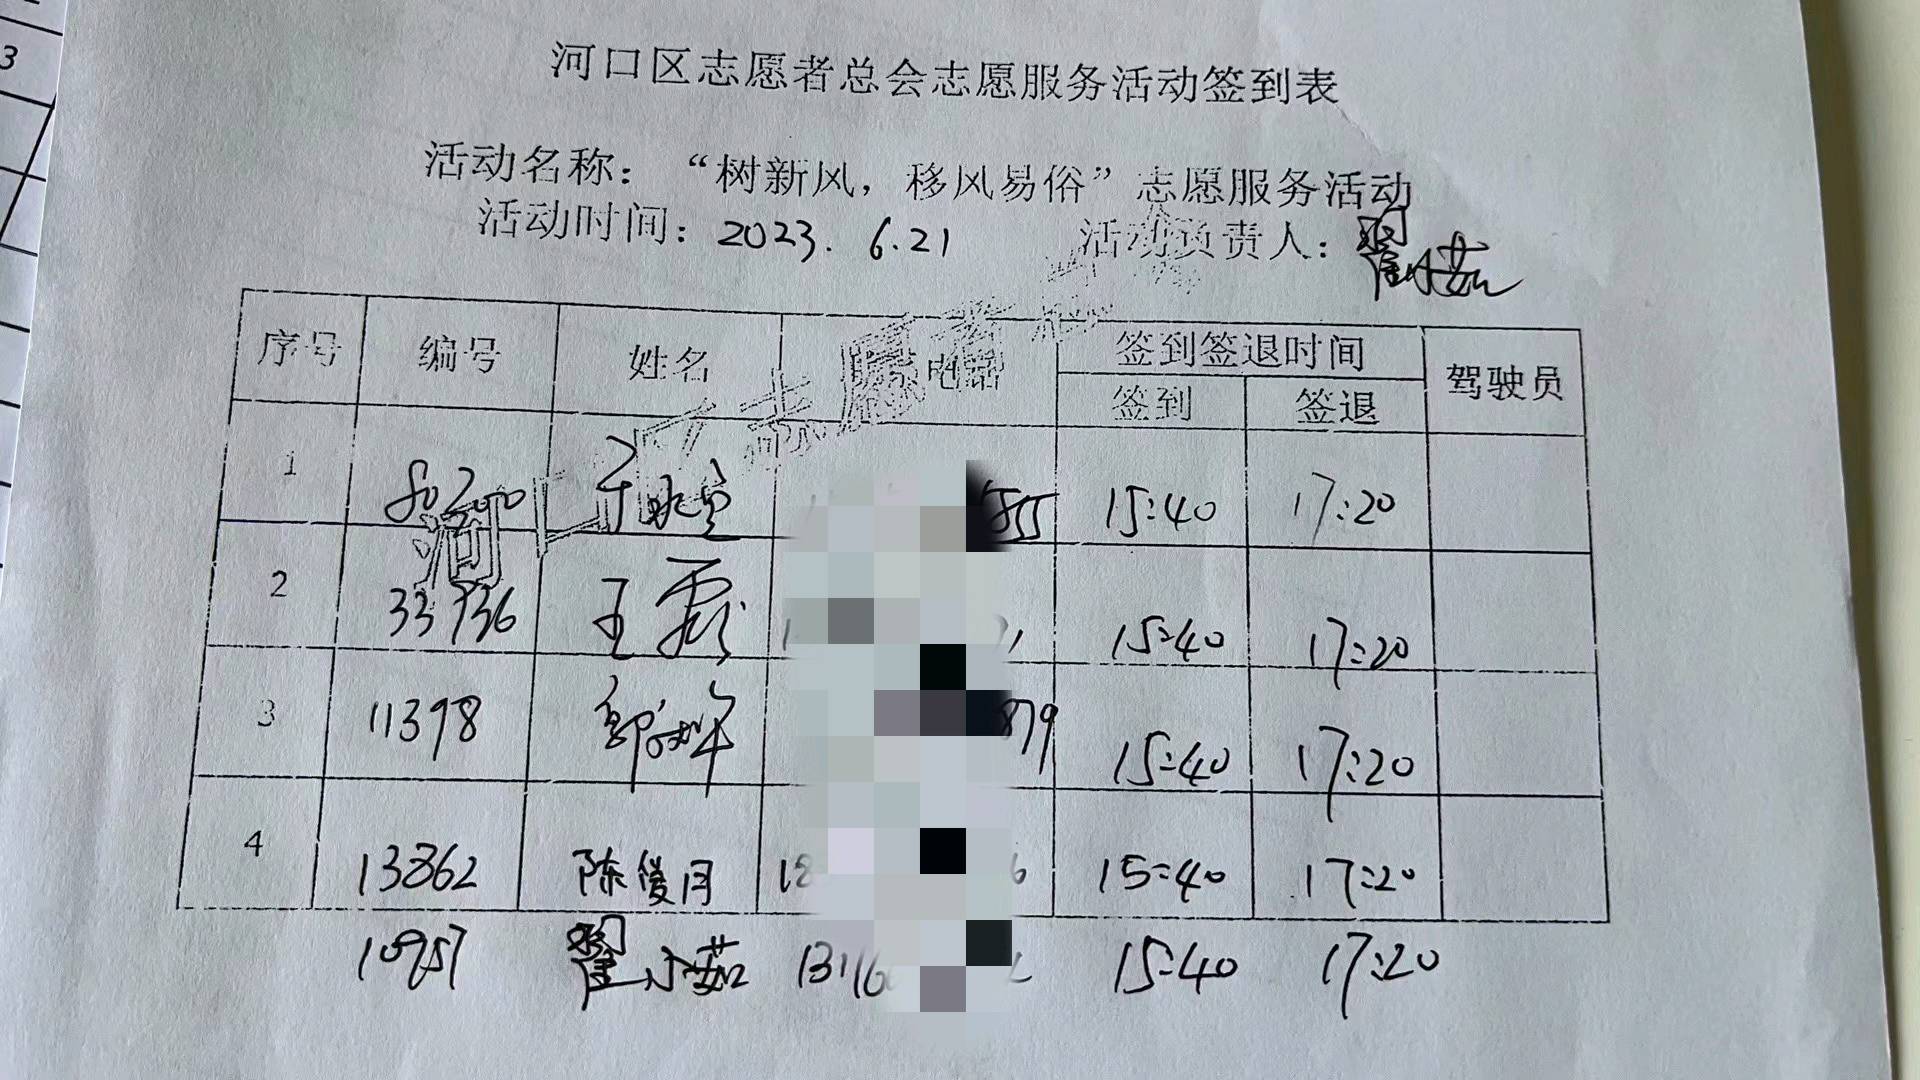 河口区志愿者总会志愿服务活动签到表
活动名称：“树新风，移风易俗”志愿服务活动
活动时间：2023.6.21 活动负责人：翟小茹
序号 编号 姓名 联系电话 签到签退时间 驾驶员
签到 签退
1 15:40 17:20
2 33936 王霞 15:40 17:20
3 11398 郭 879 15:40 17:20
4 13862 陈俊月 15:40 17:20
10957 翟小茹 15:40 17:20
河口区志愿者总会
3